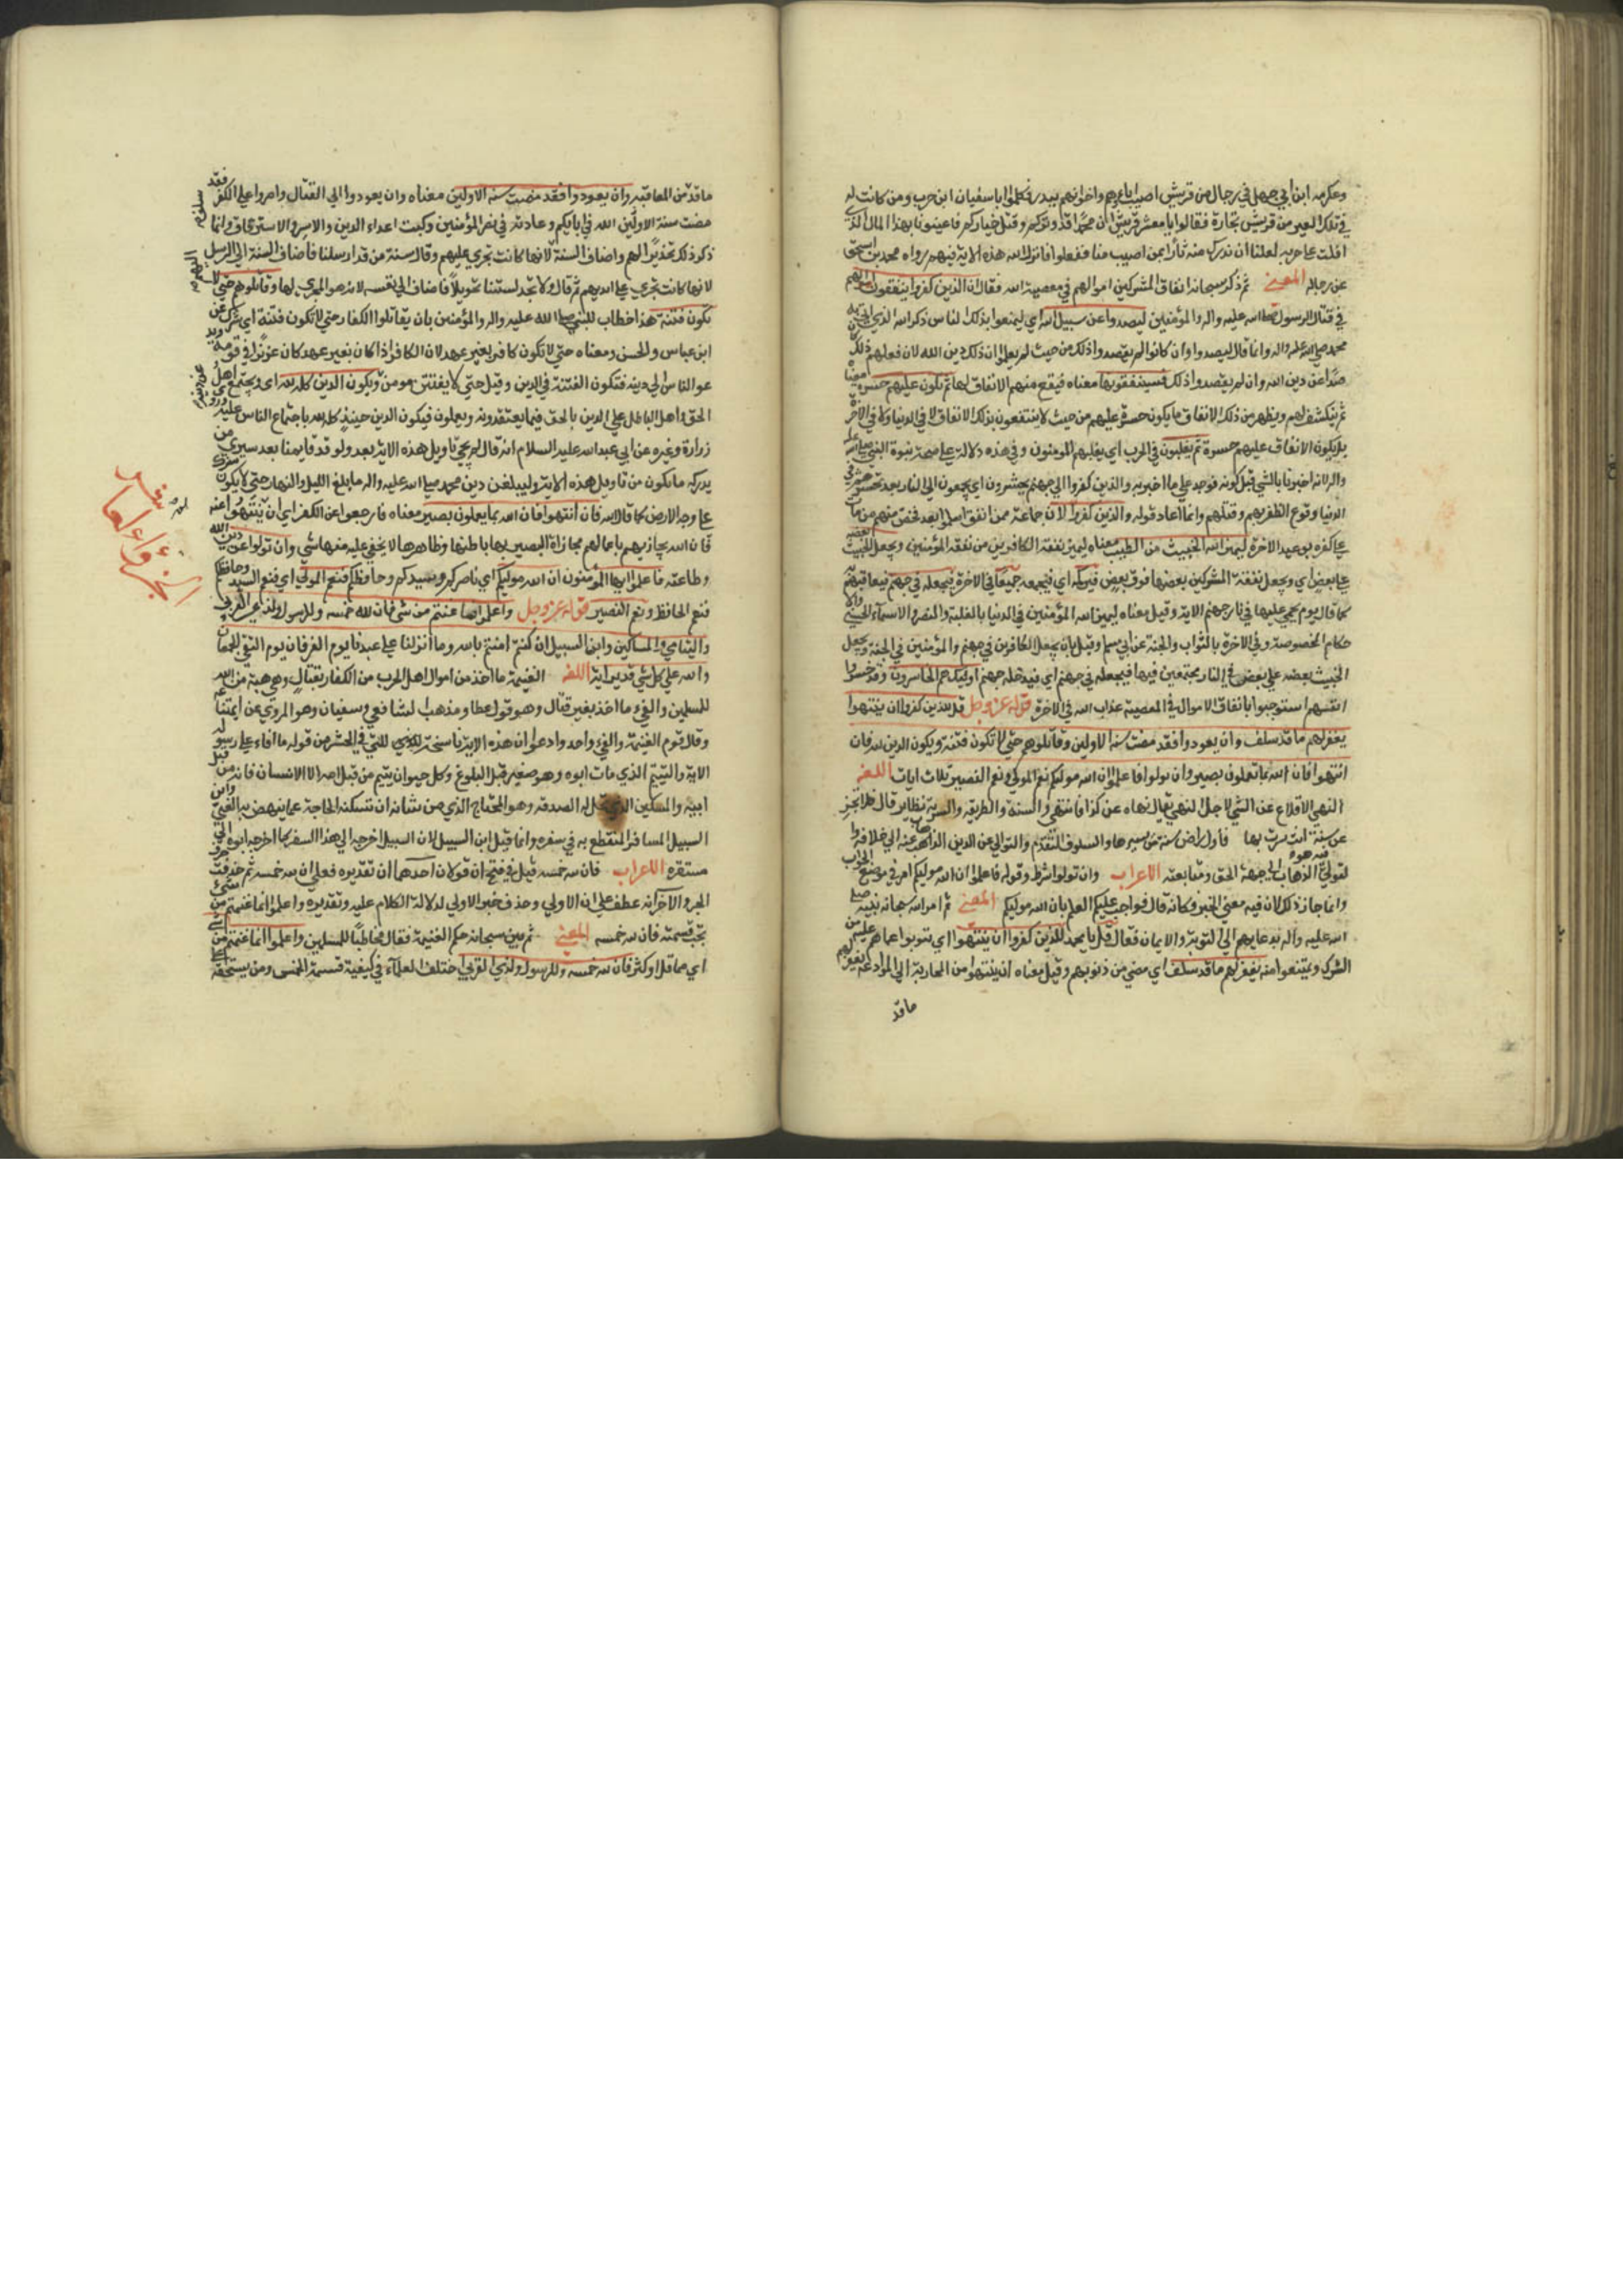 وعكرمه ابن ابي جهل في رجال من قريش اصيب اباءهم واخوانهم ببدر فكلموا ابا سفيان ابن حرب ومن كانت له
في تلك العير من قريش تجارة فقالوا يا معشر قريش ان محمدا قد وتركم وقتل خياركم فاعينونا بهذا المال الذي
افلت على حربه لعلنا ان ندرك منه ثارا بمن اصيب منا ففعلوا فانزل الله هذه الاية فيهم رواه محمد بن اسحق
عن رجاله المعني ثم ذكر سبحانه انفاق المشركين اموالهم في معصية الله فقال ان الذين كفروا ينفقون اموالهم
في قتال الرسول صلى الله عليه واله والمؤمنين ليصدوا عن سبيل الله اي ليمنعوا بذلك الناس ذكر الله الذي اتى به
محمد صلى الله عليه واله وانما قال ليصدوا وان كانوا لم يقصدوا ذلك من حيث لم يعلموا ان ذلك دين الله لان فعلهم ذلك كان
صدا عن دين الله وان لم يقصدوا ذلك فسينفقونها معناه فيقع منهم الانفاق لها ثم تكون عليهم حسرة معناه
ثم ينكشف لهم ويظهر من ذلك الانفاق ما يكون حسرة عليهم من حيث لا ينتفعون بذلك الانفاق لا في الدنيا ولا في الاخرة
بل يكون الانفاق عليهم حسرة ثم يغلبون في الحرب اي يغلبهم المومنون وفي هذه دلالة على صحة نبوة النبي صلى الله عليه
واله لانه اخبرنا بالشي قبل كونه فوجد على ما اخبر به والذين كفروا الى جهنم يحشرون اي يجمعون الى النار بعد تحسرهم في
الدنيا ووقوع الظفر بهم وقتلهم وانما اعاد قوله والذين كفروا لان جماعة ممن انفق اسلموا بعد فخص منهم من مات
على كفره بوعيد الاخرة ليميز الله الخبيث من الطيب معناه ليميز نفقة الكافرين من نفقة المؤمنين ويجعل الخبيث بعضه
على بعض اي ويجعل نفقة المشركين بعضها فوق بعض فيركمه اي فيجمعه جميعا في الاخرة فيجعله في جهنم فيعاقبهم به
كما قال يوم يحمى عليها في نار جهنم الاية وقيل معناه ليميز الله المؤمنين في الدنيا بالغلبة والنصر والاسماء الحسني والا
حكام المخصوصة وفي الاخرة بالثواب والجنة عن ابي مسلم وقيل بان يجعل الكافرين في جهنم والمؤمنين في الجنة ويجعل
الخبيث بعضه على بعض في النار مجتمعين فيها فيجعله في جهنم اي فيدخله جهنم اولئك هم الخاسرون وقد خسروا
انفسهم استوجبوا بانفاق الاموال في المعصية عذاب الله في الاخرة قوله عز وجل قل للذين كفروا ان ينتهوا
يغفر لهم ما قد سلف وان يعودوا فقد مضت سنة الاولين وقاتلوهم حتى لا تكون فتنة ويكون الدين لله فان
انتهوا فان الله بما تعملون بصير وان تولوا فاعلموا ان الله موليكم نعم المولي ونعم النصير ثلاث ايات اللغه
النهي الاقلاع عن الشي لاجل النهي يقال نهاه عن كذا فانتهى والسنة والطريقة والسيرة نظاير قال فلا تجزعن
عن سنة انت سرت بها فاول راض سنة من يسيرها والسلوف التقدم والتولي عن الدين الذهاب عنه الى خلافه و
لتولي الذهاب الي جهة الحق ومتابعته الاعراب وان تولوا شرط وقوله فاعلموا ان الله موليكم امر في موضع الجواب
وانما جاز ذلك لان فيه معنى الخبر فكانه قال فواجب عليكم العلم بان الله موليكم المعني ثم امر الله سبحانه نبيه صلى
الله عليه واله بدعايهم الى التوبة والايمان فقال قل يا محمد للذين كفروا ان ينتهوا اي يتوبوا عما هم عليه من
الشرك ويمتنعوا منه يغفر لهم ما قد سلف اي مضى من ذنوبهم وقيل معناه ان ينتهوا من المحاربة الى الموادعة يغفر لهم
ما قد
ما قد من المعاقبة وان يعودوا فقد مضت سنة الاولين معناه وان يعودوا الى القتال واصروا على الكفر فقد
مضت سنة الاولين الله في ابايكم وعادته في نصر المؤمنين وكبت اعداء الدين والاسر والاسترقاق وانما
ذكر ذلك تحذيرا لهم واضاف السنة لانها كانت تجري عليهم وقال سنة من قد ارسلنا فاضاف السنة الى الرسل
لانها كانت تجري على ايديهم ثم قال ولا تجد لسنتنا تحويلا فاضاف الى نفسه لانه هو المجري لها وقاتلوهم حتى لا
تكون فتنة هذا خطاب للنبي صلى الله عليه واله والمؤمنين بان يقاتلوا الكفار حتى لا تكون فتنة اي شرك عن
ابن عباس والحسن ومعناه حتى لا تكون كافر بغير عهد لان الكافر اذا كان بغير عهد كان عزيزا في قومه ويد
عو الناس الى دينه فتكون الفتنة في الدين وقيل حتى لا يفتتن مومن ويكون الدين كله لله اي ويجتمع اهل
الحق واهل الباطل على الدين بالحق فيما يعتقدونه ويعملون فيكون الدين حينيذ كله لله باجتماع الناس عليه وروى
زرارة وغيره عن ابي عبد الله عليه السلام انه قال لم يجئ تاويل هذه الاية بعد ولو قد قايمنا بعد سيرى من
يدركه ما يكون من تاويل هذه الاية وليبلغن دين محمد صلى الله عليه واله ما بلغ الليل والنهار حتى لا يكون شرك
على وجه الارض كما قال الله فان انتهوا فان الله بما يعملون بصير معناه فان رجعوا عن الكفر اي ان ينتهوا عنه
فان الله يجازيهم باعمالهم مجازاة البصير بها باطنها وظاهرها لا يخفي عليه منها شي وان تولوا عن دين الله
وطاعته فاعلموا ايها المؤمنون ان الله موليكم اي ناصركم وسيدكم وحافظكم فنعم المولى اي فنعم السيد وحافظكم
فنعم الحافظ ونعم النصير قوله عز وجل واعلموا انما غنمتم من شي فان لله خمسه وللرسول ولذي القربى
واليتامى والمساكين وابن السبيل ان كنتم امنتم بالله وما انزلنا على عبدنا يوم الفرقان يوم التقى الجمعان
والله على كل شي قدير اية اللغه الغنيمة ما اخذ من اموال اهل الحرب من الكفار بقتال وهي هبة من الله
للمسلمين والفيء ما اخذ بغير قتال وهو قول عطا ومذهب الشافعي وسفيان وهو المروي عن ايمتنا
وقال قوم الغنيمة والفيء واحد وادعوا ان هذه الاية ناسخة للتي في الحشر من قوله ما افاء على رسوله
الاية واليتيم الذي مات ابوه وهو صغير قبل البلوغ وكل حيوان يتيم من قبل امه الا الانسان فانه من قبل
ابيه والمسكين الذي تحل له الصدقه وهو المحتاج الذي من شانه ان تسكنه الحاجة عما ينهض به الغني وابن
السبيل المسافر المنقطع به في سفره وانما قيل ابن السبيل لان السبيل اخرجه الى هذا السفر كما اخرجه ابوه الى
مستقره الاعراب فان لله خمسه قيل في فتح ان قولان احدهما ان تقديره فعلى ان لله خمسه ثم حذف حرف
الجر والاخر انه عطف على ان الاولى وحذف خبر الاولى لدلالة الكلام عليه وتقديره واعلموا انما غنمتم من شي
يجب قسمته فان لله خمسه المعني ثم بين سبحانه حكم الغنيمة فقال مخاطبا للمسلمين واعلموا انما غنمتم من شي
اي مما قل او كثر فان لله خمسه وللرسول ولذي القربى اختلف العلماء في كيفية قسمة الخمس ومن يستحقه
الجزء العاشر